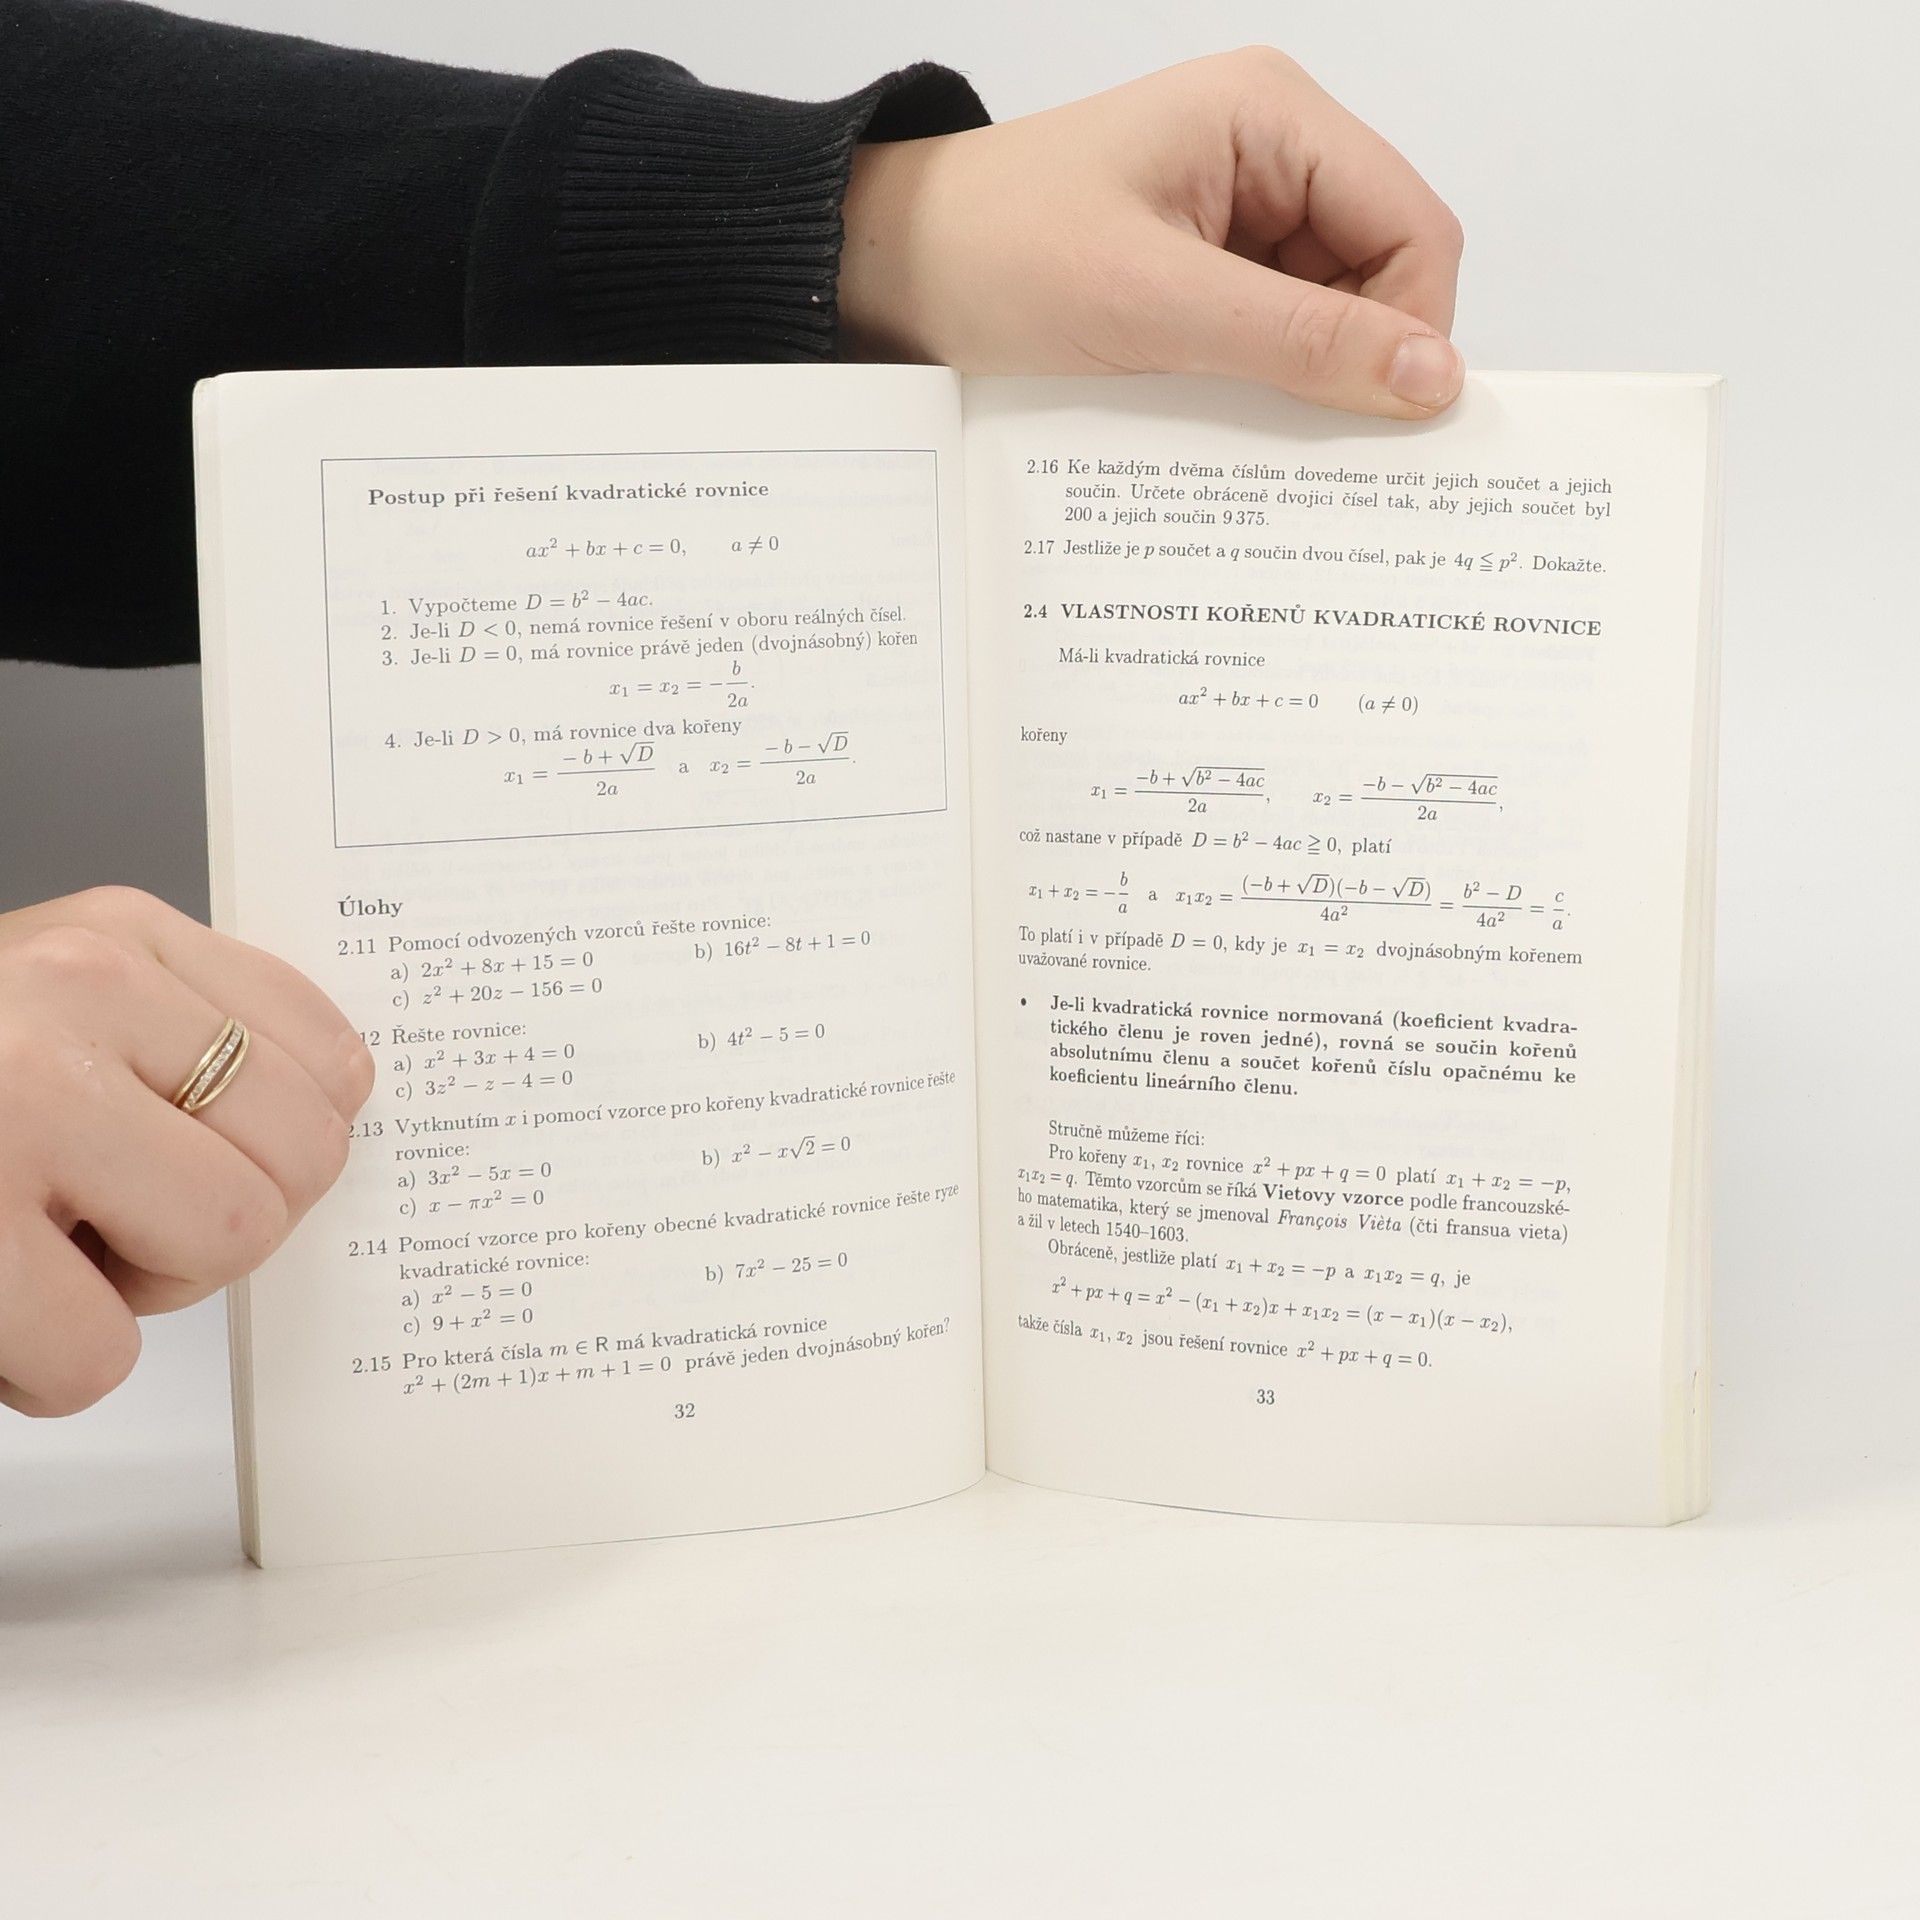 Postup při řešení kvadratické rovnice
ax² + bx + c = 0, a ≠ 0
1. Vypočteme D = b² − 4ac.
2. Je-li D < 0, nemá rovnice řešení v oboru reálných čísel.
3. Je-li D = 0, má rovnice právě jeden (dvojnásobný) kořen
x₁ = x₂ = −b/2a.
4. Je-li D > 0, má rovnice dva kořeny
x₁ = (−b + √D)/2a a x₂ = (−b − √D)/2a.
Úlohy
2.11 Pomocí odvozených vzorců řešte rovnice:
a) 2x² + 8x + 15 = 0 b) 16t² − 8t + 1 = 0
c) z² + 20z − 156 = 0
12 Řešte rovnice:
a) x² + 3x + 4 = 0 b) 4t² − 5 = 0
c) 3z² − z − 4 = 0
2.13 Vytknutím x i pomocí vzorce pro kořeny kvadratické rovnice řešte
rovnice:
a) 3x² − 5x = 0 b) x² − x√2 = 0
c) x − πx² = 0
2.14 Pomocí vzorce pro kořeny obecné kvadratické rovnice řešte ryze
kvadratické rovnice:
a) x² − 5 = 0 b) 7x² − 25 = 0
c) 9 + x² = 0
2.15 Pro která čísla m ∈ R má kvadratická rovnice
x² + (2m + 1)x + m + 1 = 0 právě jeden dvojnásobný kořen?
32
2.16 Ke každým dvěma číslům dovedeme určit jejich součet a jejich
součin. Určete obráceně dvojici čísel tak, aby jejich součet byl
200 a jejich součin 9 375.
2.17 Jestliže je p součet a q součin dvou čísel, pak je 4q ≦ p². Dokažte.
2.4 VLASTNOSTI KOŘENŮ KVADRATICKÉ ROVNICE
Má-li kvadratická rovnice
ax² + bx + c = 0 (a ≠ 0)
kořeny
x₁ = (−b + √(b² − 4ac))/2a, x₂ = (−b − √(b² − 4ac))/2a,
což nastane v případě D = b² − 4ac ≧ 0, platí
x₁ + x₂ = −b/a a x₁x₂ = (−b + √D)(−b − √D)/4a² = (b² − D)/4a² = c/a.
To platí i v případě D = 0, kdy je x₁ = x₂ dvojnásobným kořenem
uvažované rovnice.
• Je-li kvadratická rovnice normovaná (koeficient kvadra-
tického členu je roven jedné), rovná se součin kořenů
absolutnímu členu a součet kořenů číslu opačnému ke
koeficientu lineárního členu.
Stručně můžeme říci:
Pro kořeny x₁, x₂ rovnice x² + px + q = 0 platí x₁ + x₂ = −p,
x₁x₂ = q. Těmto vzorcům se říká Vietovy vzorce podle francouzské-
ho matematika, který se jmenoval François Vièta (čti fransua vieta)
a žil v letech 1540–1603.
Obráceně, jestliže platí x₁ + x₂ = −p a x₁x₂ = q, je
x² + px + q = x² − (x₁ + x₂)x + x₁x₂ = (x − x₁)(x − x₂),
takže čísla x₁, x₂ jsou řešení rovnice x² + px + q = 0.
33